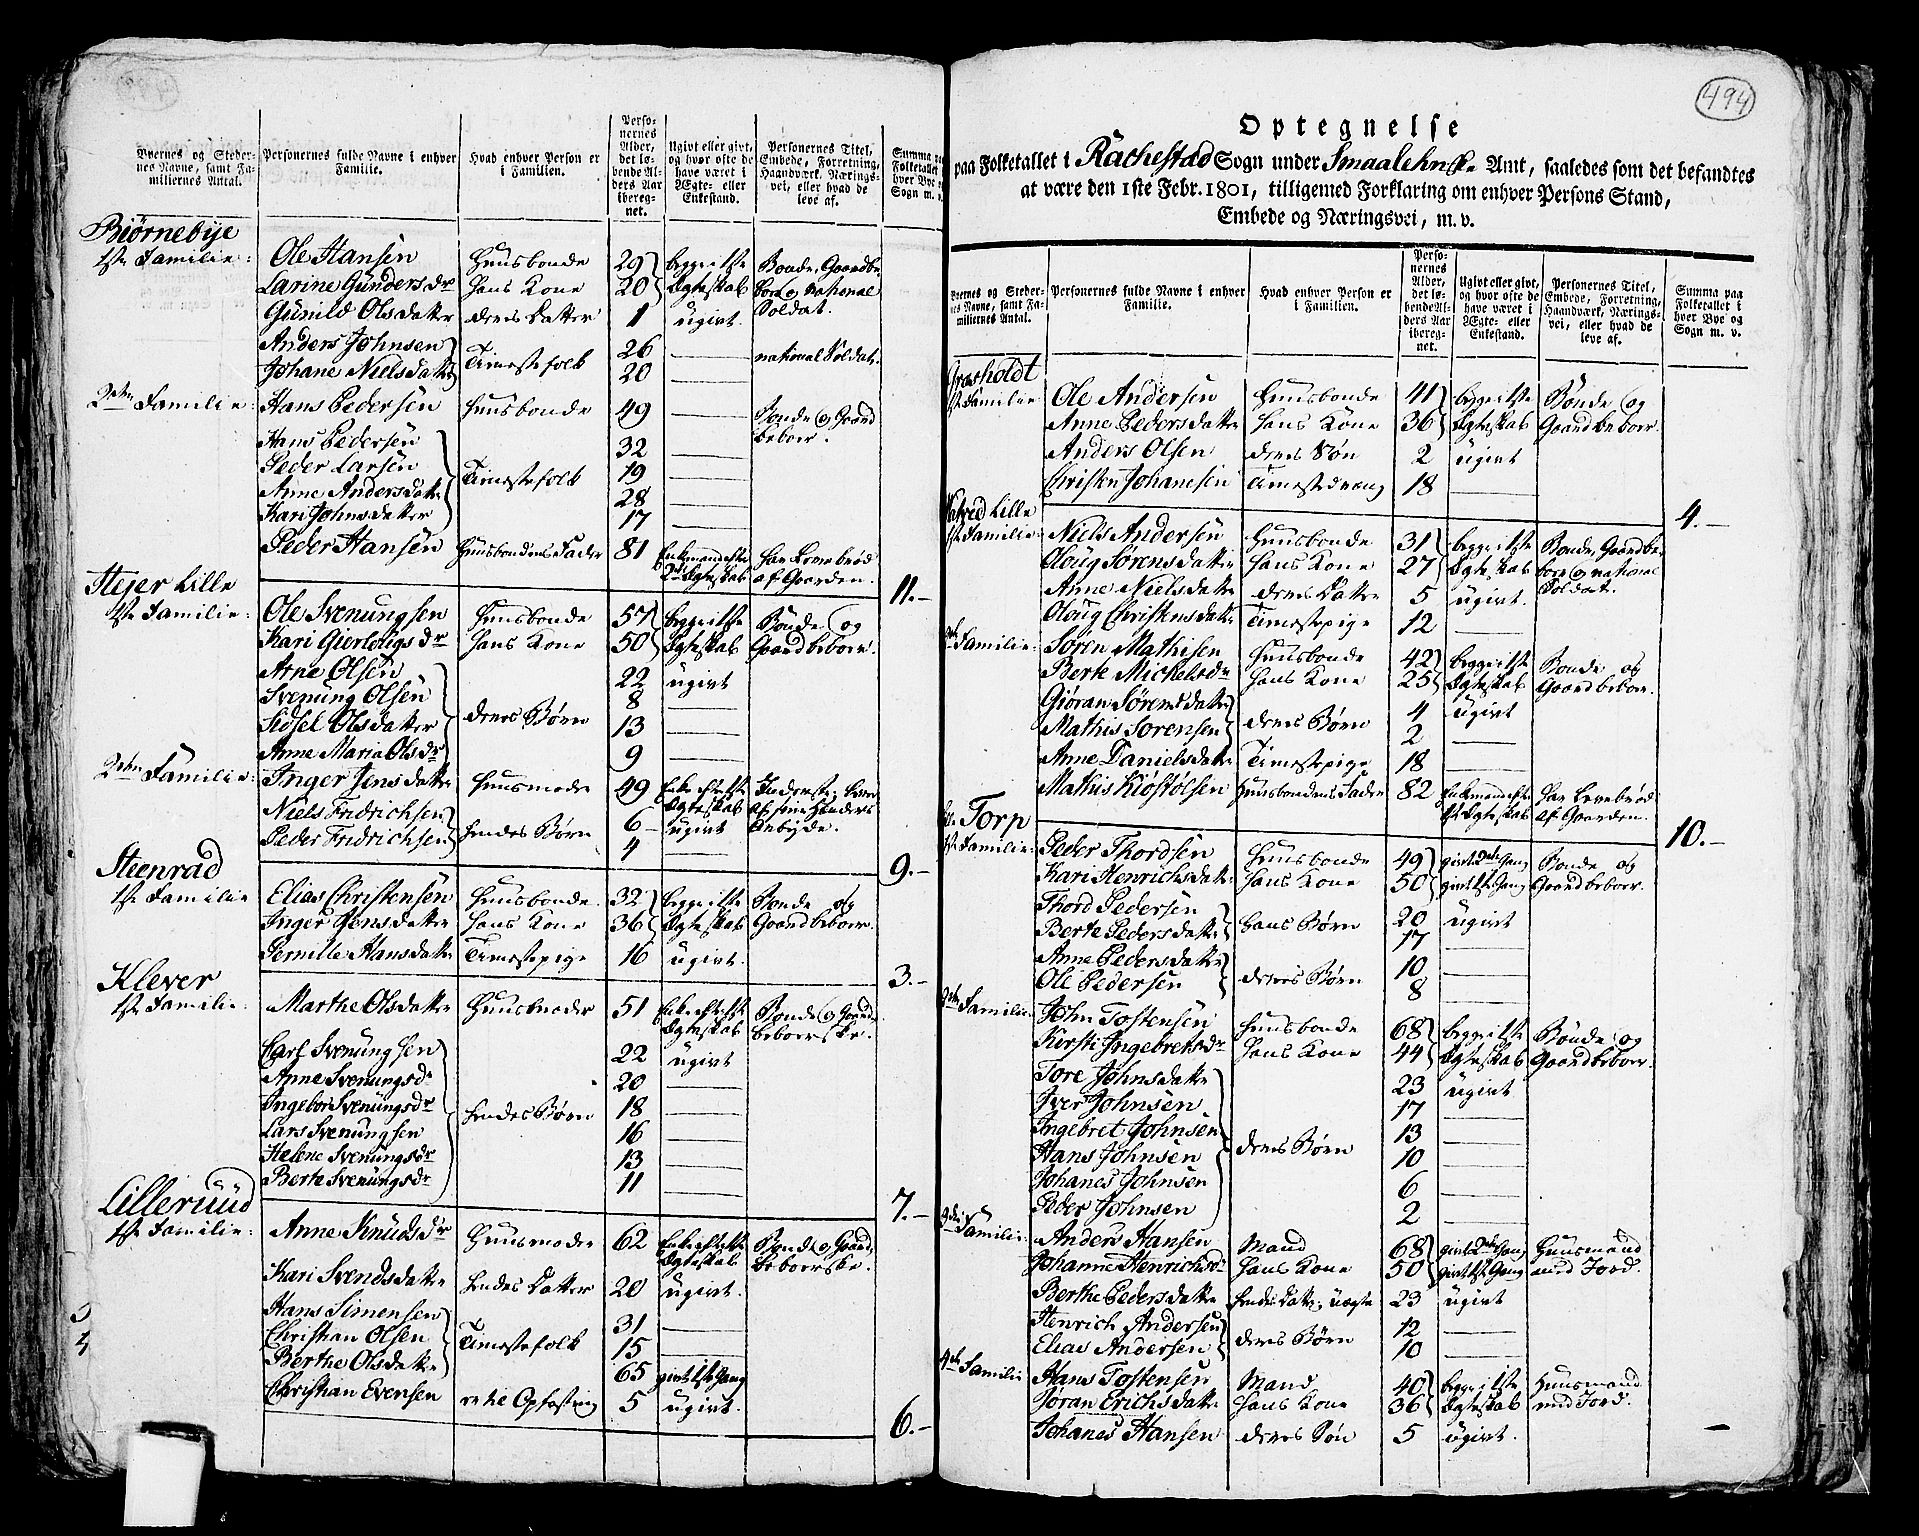 Byernes og Steder-
nes Navne, samt Fa-
miliernes Antal.
Personernes fulde Navne i enhver
Familie.
Hvad enhver Person er
i Familien.
Perso-
nernes
Alder,
det lø-
bende Al-
ders Aar
iberegnet.
Ugivt eller givt,
og hvor ofte de
have været i
Ægte- eller
Enkestand.
Personernes Titel,
Embede, Forretning,
Haandværk, Nærings-
vei, eller hvad de
leve af.
Summa paa
Folketallet i
hver Bye og
Sogn m. v.
Biørnebye
1ste Familie: Ole Hansen Huusbonde 29 begge i 1ste Bonde, Gaardbe-
Larine Gundersdr hans Kone 20 Ægteskab boer og national
Gunild Olsdatter deres Datter 1 ugivt. Soldat.
Anders Johnsen 26 — national Soldat.
Johane Nielsdatter Tienestefolk 20 —
2den Familie: Hans Pedersen Huusbonde 49 — Bonde og Gaard
beboer.
Hans Pedersen 32 —
Peder Larsen 19 —
Anne Andersdatter Tienestefolk 28 —
Kari Johnsdatter 17 —
Peder Hansen Huusbondens Fader 81 Enkemand efter har Levebrød
2det Ægteskab af Gaarden. 11.-
Stejer Lille
1ste Familie: Ole Svenungsen Huusbonde 57 begge i 1ste Bonde og
Kari Gierløugsdr hans Kone 50 Ægteskab Gaardbeboer.
Arne Olsen 22 ugivt
Svenung Olsen 8 —
Sidsel Olsdatter deres Børn 13 —
Anne Maria Olsdr 9 —
2den Familie: Inger Jensdatter Huusmoder 49 Enke efter 1ste Inderste, lever
Ægteskab af sine Hænders
Niels Fridrichsen 6 ugivt Arbejde.
Peder Fridrichsen hendes Børn 4 — 9.-
Steenrad
1ste Familie Elias Christensen Huusbonde 32 begge i 1ste Bonde og
Inger Jensdatter hans Kone 36 Ægteskab Gaardbeboer.
Pernille Hansdatter Tienestepige 16 ugivt. 3.-
Klever
1ste Familie: Marthe Olsdatter Huusmoder 51 Enke efter 1ste Bonde og Gaard-
Ægteskab beboerske.
Carl Svenungsen 22 ugivt
Anne Svenungsdr 20 —
Ingebor Svenungsdr 18 —
Lars Svenungsen hendes Børn 16 —
Helene Svenungsdr 13 —
Berte Svenungsdr 11 — 7.-
Lilleruud
1ste Familie: Anne Knudsdr Huusmoder 62 Enke efter 1ste Bonde og Gaard-
Ægteskab beboerske.
Kari Svendsdatter hendes Datter 20 ugivt.
Hans Simensen 31 —
Christian Olsen Tienestefolk 15 —
Berthe Olsdatter 65 givt 1ste Gang
Christian Evensen 5 ugivt. 6.-
494
Optegnelse
paa Folketallet i Rachestad Sogn under Smaalehnske Amt, saaledes som det befandtes
at være den 1ste Febr. 1801, tilligemed Forklaring om enhver Persons Stand,
Embede og Næringsvei, m. v.
Byernes og Steder-
nes Navne, samt Fa-
miliernes Antal.
Personernes fulde Navne i enhver
Familie.
Hvad enhver Person er
i Familien.
Perso-
nernes
Alder,
det lø-
bende Al-
ders Aar
iberegnet.
Ugivt eller givt,
og hvor ofte de
have været i
Ægte- eller
Enkestand.
Personernes Titel,
Embede, Forretning,
Haandværk, Nærings-
vei, eller hvad de
leve af.
Summa paa
Folketallet i
hver Bye og
Sogn m. v.
Grasholdt
1ste Familie Ole Andersen Huusbonde 41 begge i 1ste Bonde og
Anne Pedersdatter hans Kone 36 Ægteskab Gaardbeboer.
Anders Olsen deres Søn 2 ugivt
Christen Johanesen Tienestedreng 18 — 4.-
Lille
1ste Familie: Niels Andersen Huusbonde 31 begge i 1ste Bonde, Gaardbe-
Oloug Sørensdatter hans Kone 27 Ægteskab boer og national
Anne Nielsdatter deres Datter 5 ugivt. Soldat.
Oloug Christensdatter Tienestepige 12 —
2den Familie: Søren Mathisen Huusbonde 42 begge i 1ste Bonde og
Berte Mickelsdr hans Kone 25 Ægteskab Gaardbeboer.
Giøran Sørensdatter 4 ugivt
Mathis Sørensen deres Børn 2 —
Anne Danielsdatter Tienestepige 18 —
Mathis Kiøstølsen Huusbondens Fader 82 Enkemand efter har Levebrød
1ste Ægteskab af Gaarden. 10.-
Torp
1ste Familie: Peder Thordsen Huusbonde 49 givt 2den Gang Bonde og
Kari Henrichsdatter hans Kone 50 givt 1ste Gang Gaardbeboer.
Thord Pedersen 20 ugivt
Berte Pedersdatter hans Børn 17 —
Anne Pedersdatter 10 —
Ole Pedersen deres Børn 8 —
2den Familie: John Tostensen Huusbonde 68 begge i 1ste Bonde og
Kirsti Ingebretsdr hans Kone 44 Ægteskab Gaardbeboer.
Tore Johnsdatter 23 ugivt
Iver Johnsen 17 —
Ingebret Johnsen 13 —
Hans Johnsen deres Børn 10 —
Johanes Johnsen 6 —
Peder Johnsen 2 —
3die Familie: Anders Hansen Mand 68 givt 2den Gang Huusmand
Johanne Henrichsdr hans Kone 50 givt 1ste Gang med Jord.
Berthe Pedersdatter hendes Datter, uægte 23 ugivt
Henrich Andersen 12 —
Elias Andersen deres Børn 10 —
4de Familie Hans Tostensen Mand 40 begge i 1ste Huusmand
Jøran Erichsdatter hans Kone 36 Ægteskab med Jord.
Johanes Hansen deres Søn 5 ugivt. —